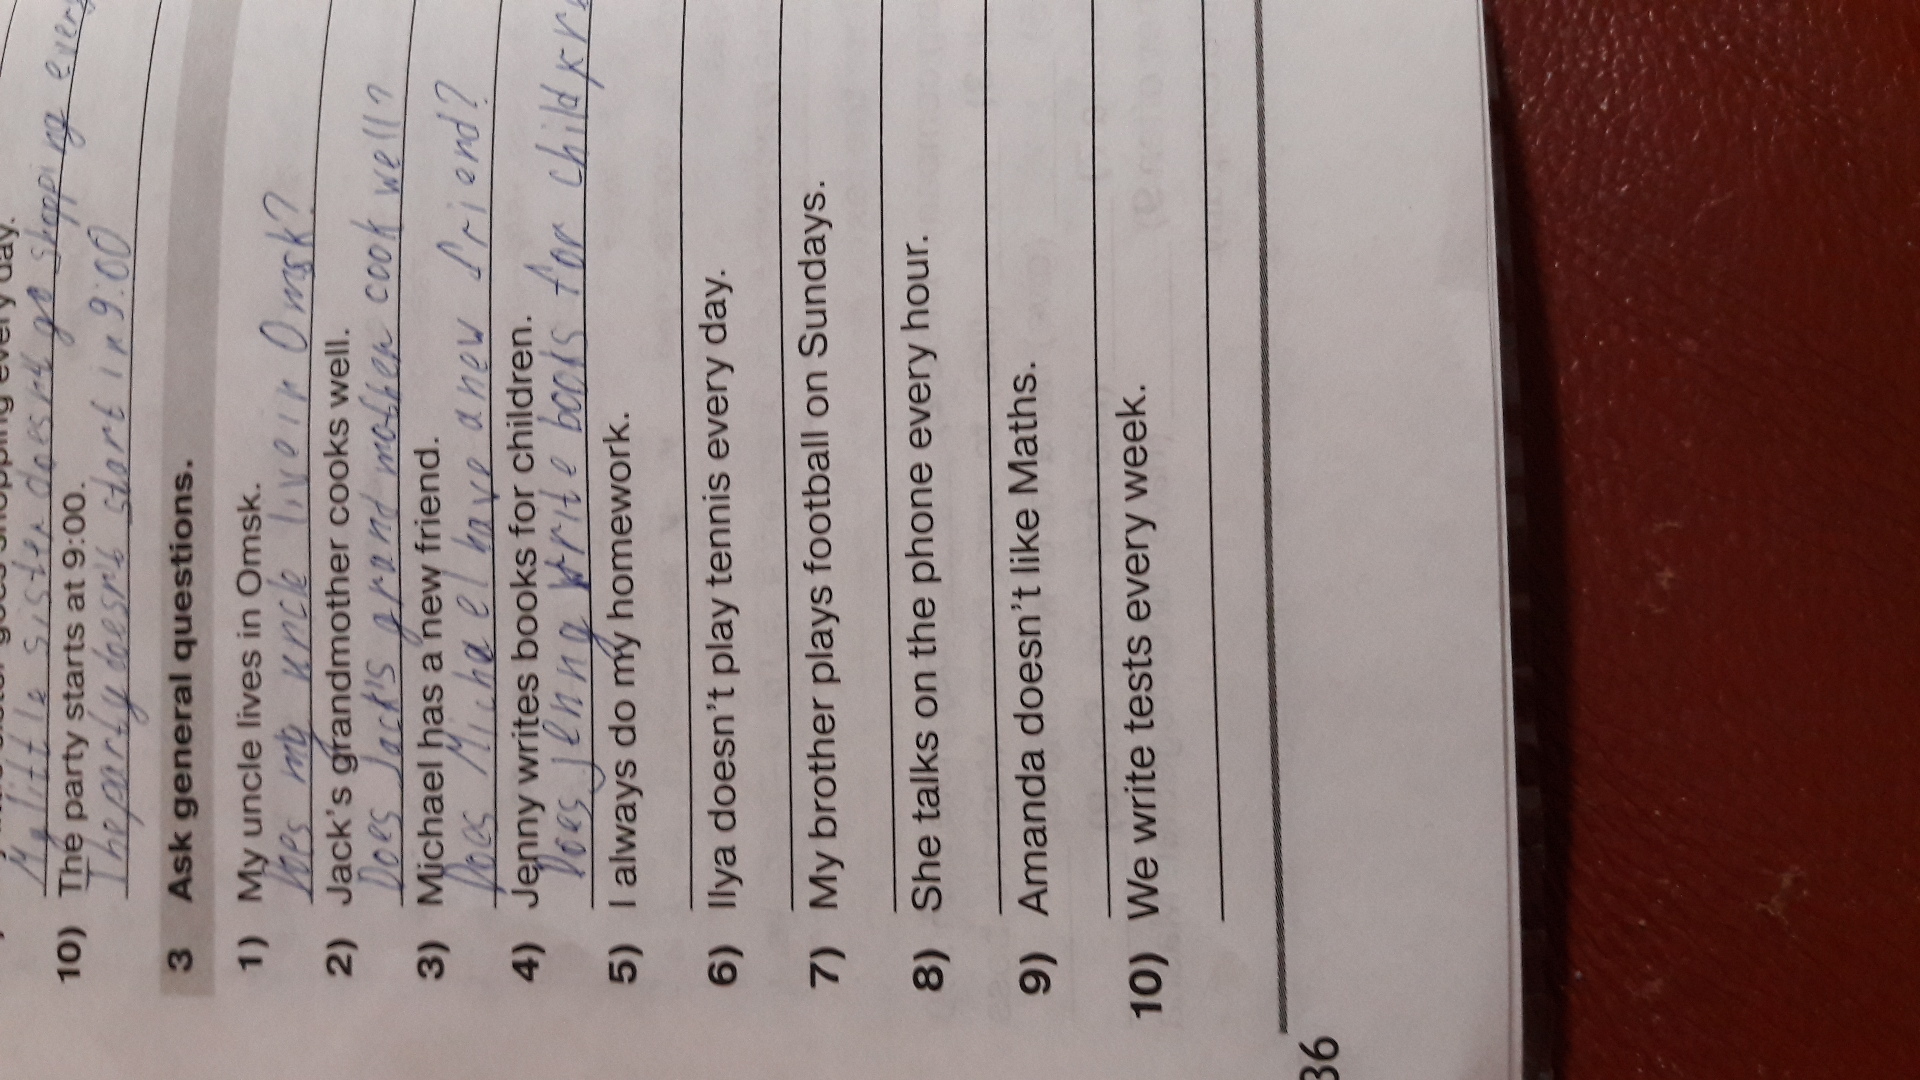 shopping every day.
My little sister doesn't go shopping every
10) The party starts at 9:00.
The party doesn't start in 9:00
3 Ask general questions.
1) My uncle lives in Omsk.
Does my uncle live in Omsk?
2) Jack's grandmother cooks well.
Does Jack's grandmother cook well?
3) Michael has a new friend.
Does Michael have a new friend?
4) Jenny writes books for children.
Does Jenny write books for
5) I always do my homework.
6) Ilya doesn't play tennis every day.
7) My brother plays football on Sundays.
8) She talks on the phone every hour.
9) Amanda doesn't like Maths.
10) We write tests every week.
36